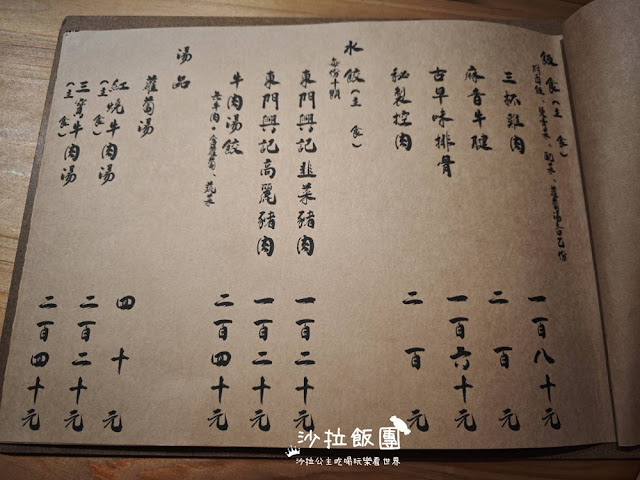 飯食(主食)
三杯雞肉 一百八十元
麻香牛腱 二百元
古早味排骨 一百六十元
秘製控肉 二百元
水餃(主食)
每份十顆
東門興記韭菜豬肉 一百二十元
東門興記高麗豬肉 一百二十元
牛肉湯餃 二百四十元
湯品
蘿蔔湯 四十元
紅燒牛肉湯
(主食) 二百二十元
三寶牛肉湯
(主食) 二百四十元
沙拉飯團
沙拉公主吃喝玩樂看世界